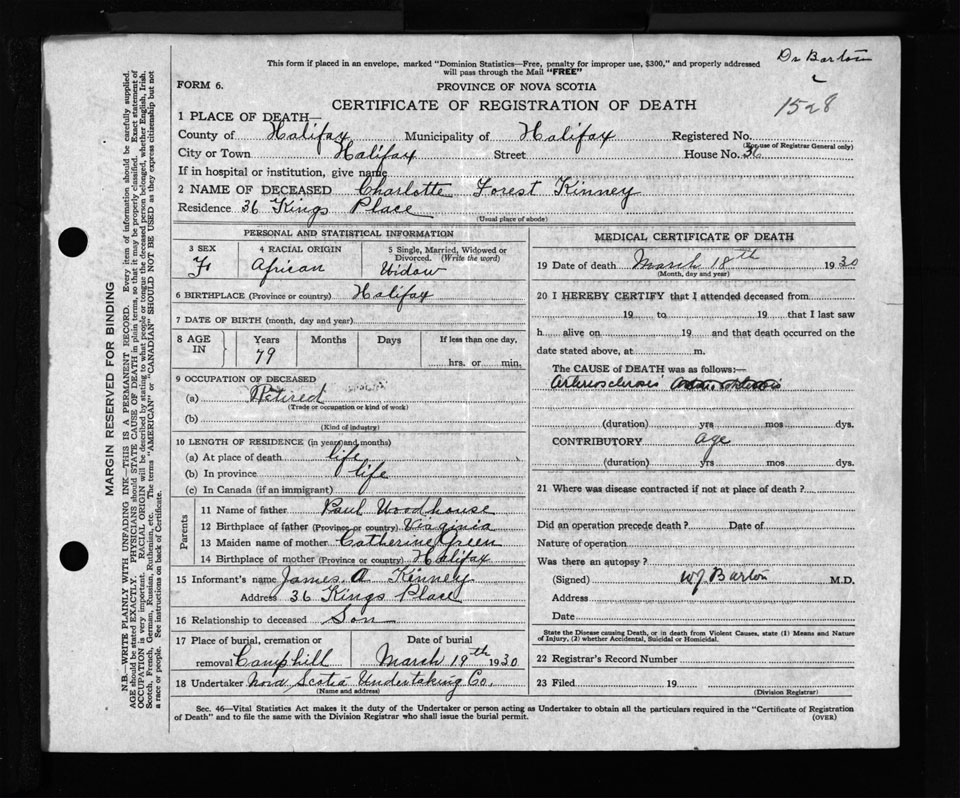 This form if placed in an envelope, marked "Dominion Statistics—Free, penalty for improper use, $300," and properly addressed
will pass through the Mail "FREE"
Dr Barton
1528
FORM 6.
PROVINCE OF NOVA SCOTIA
CERTIFICATE OF REGISTRATION OF DEATH
1 PLACE OF DEATH—
County of Halifax Municipality of Halifax Registered No.
(For use of Registrar General only)
City or Town Halifax Street House No. 36
If in hospital or institution, give name
2 NAME OF DECEASED Charlotte Forest Kinney
Residence 36 Kings Place
(Usual place of abode)
PERSONAL AND STATISTICAL INFORMATION
3 SEX 4 RACIAL ORIGIN 5 Single, Married, Widowed or
Divorced. (Write the word)
F African Widow
6 BIRTHPLACE (Province or country) Halifax
7 DATE OF BIRTH (month, day and year)
8 AGE IN Years Months Days If less than one day,
79 hrs. or min.
9 OCCUPATION OF DECEASED
(a) Retired
(Trade or occupation or kind of work)
(b)
(Kind of industry)
10 LENGTH OF RESIDENCE (in years and months)
(a) At place of death life
(b) In province life
(c) In Canada (if an immigrant)
Parents
11 Name of father Paul Woodhouse
12 Birthplace of father (Province or country) Virginia
13 Maiden name of mother Catherine Green
14 Birthplace of mother (Province or country) Halifax
15 Informant's name James A Kinney
Address 36 Kings Place
16 Relationship to deceased Son
17 Place of burial, cremation or Date of burial
removal Camphill March 19th 1930
18 Undertaker Nova Scotia Undertaking Co.
(Name and address)
MEDICAL CERTIFICATE OF DEATH
19 Date of death March 18th 1930
(Month, day and year)
20 I HEREBY CERTIFY that I attended deceased from
19 to 19 that I last saw
h alive on 19 and that death occurred on the
date stated above, at m.
The CAUSE of DEATH was as follows:—
Arteriosclerosis
(duration) yrs mos dys.
CONTRIBUTORY age
(duration) yrs mos dys.
21 Where was disease contracted if not at place of death?
Did an operation precede death? Date of
Nature of operation
Was there an autopsy?
(Signed) WJ Barton M.D.
Address
Date
State the Disease causing Death, or in death from Violent Causes, state (1) Means and Nature
of Injury, (2) whether Accidental, Suicidal or Homicidal.
22 Registrar's Record Number
23 Filed 19
(Division Registrar)
Sec. 46—Vital Statistics Act makes it the duty of the Undertaker or person acting as Undertaker to obtain all the particulars required in the "Certificate of Registration
of Death" and to file the same with the Division Registrar who shall issue the burial permit. (OVER)
MARGIN RESERVED FOR BINDING
N.B.—WRITE PLAINLY WITH UNFADING INK—THIS IS A PERMANENT RECORD. Every item of information should be carefully supplied.
AGE should be stated EXACTLY. PHYSICIANS should STATE CAUSE OF DEATH in plain terms, so that it may be properly classified. Exact statement of
OCCUPATION is very important. RACIAL ORIGIN will be described by stating to what people or tongue the deceased person belonged, whether English, Irish,
Scotch, French, German, Russian, Ruthenian, etc. The terms "AMERICAN" or "CANADIAN" SHOULD NOT BE USED as they express citizenship but not
a race or people. See instructions on back of Certificate.